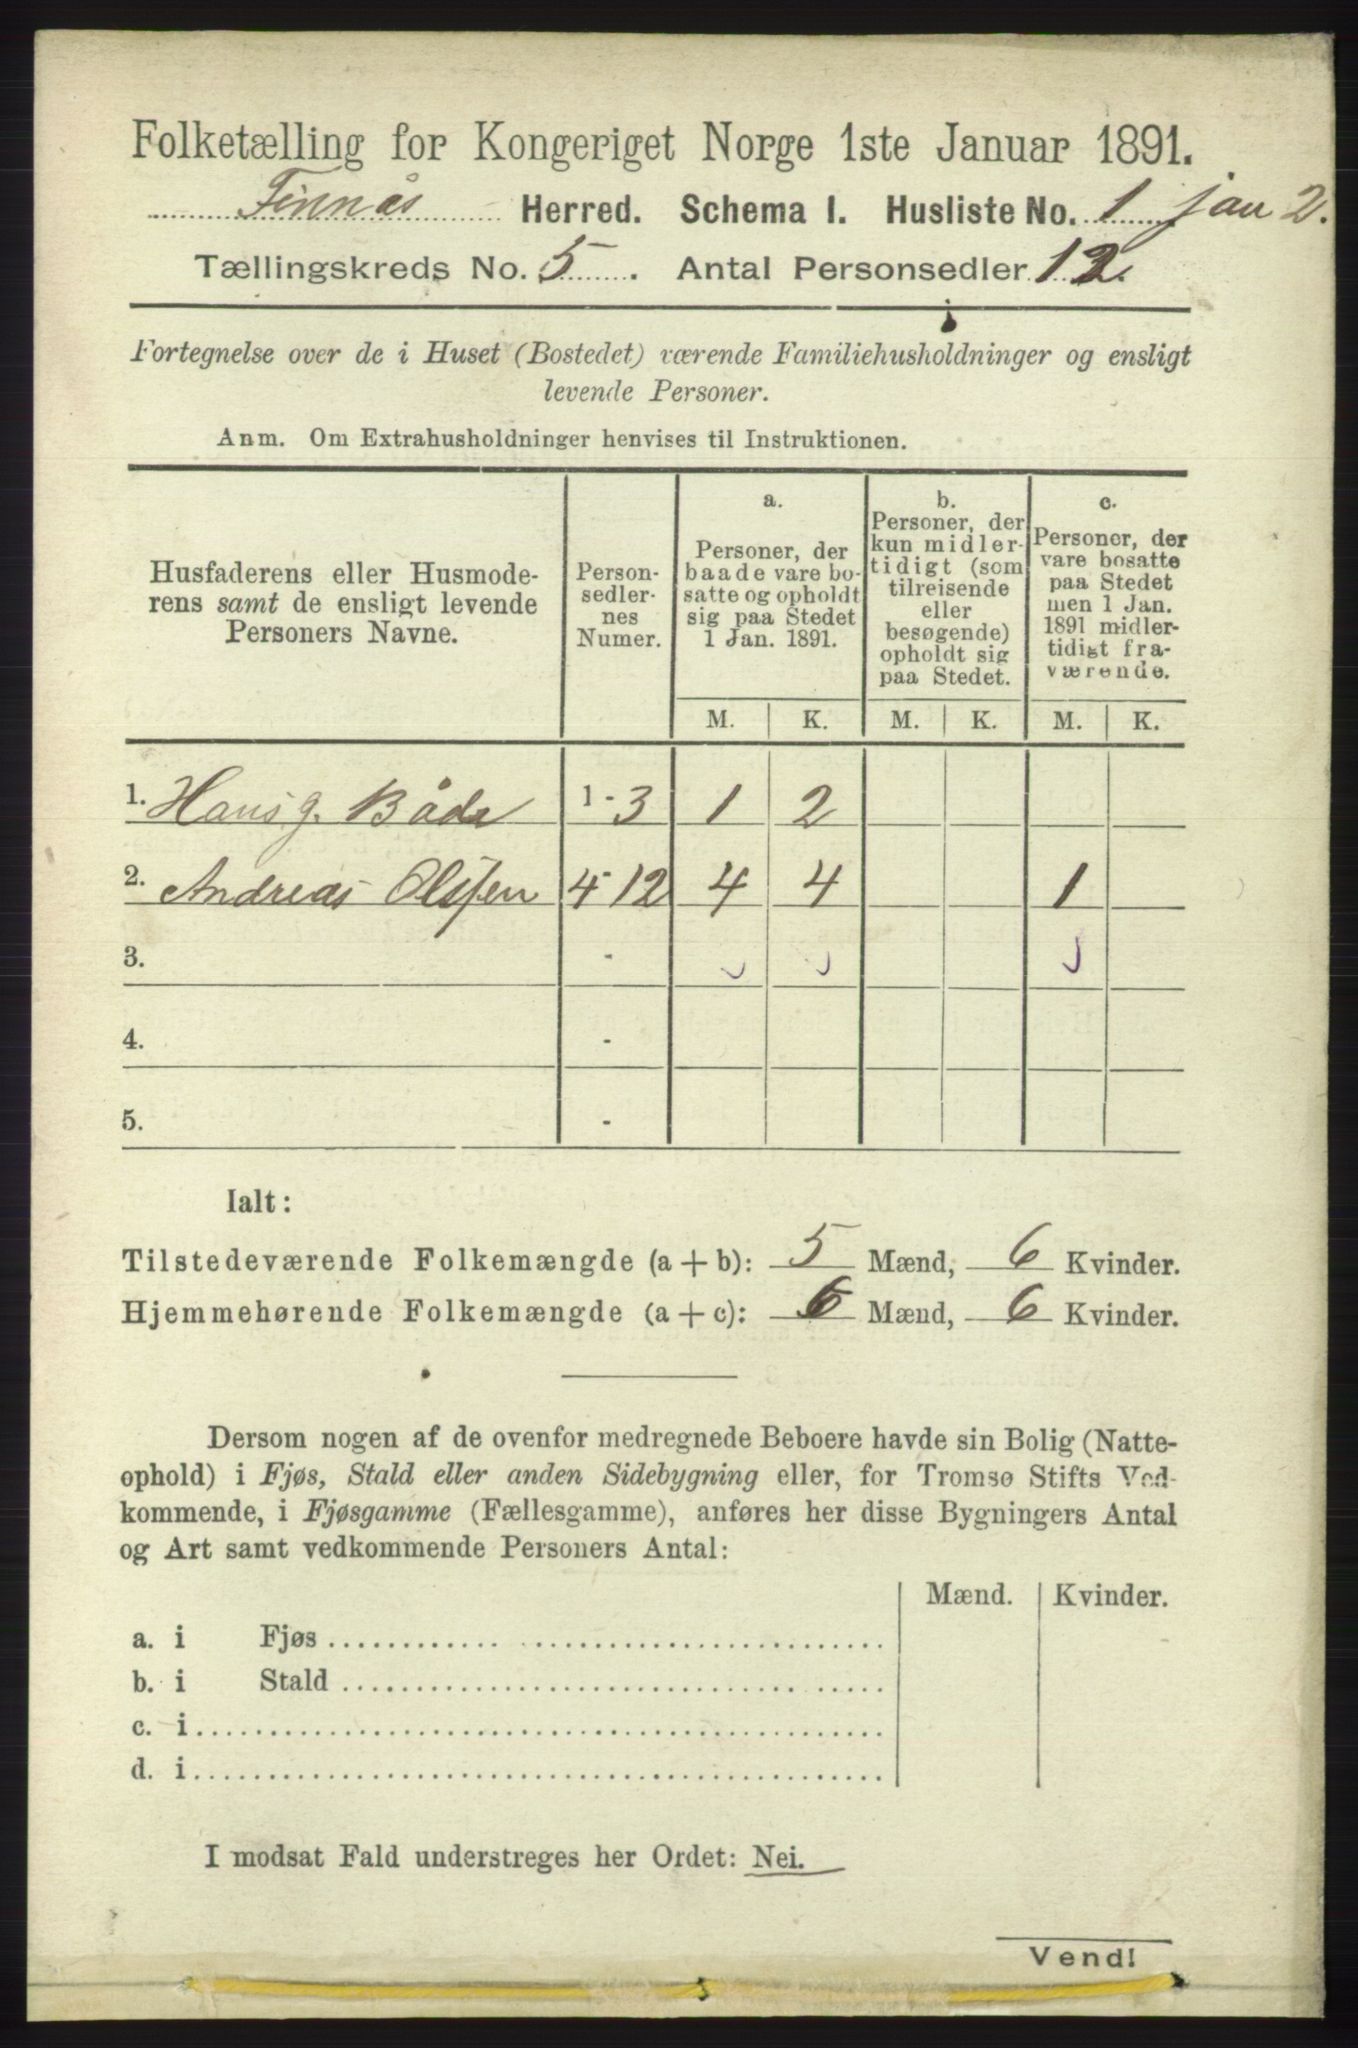 Folketælling for Kongeriget Norge 1ste Januar 1891.
Finnås Herred. Schema I. Husliste No. 1 jan 2.
Tællingskreds No. 5. Antal Personsedler 12.
Fortegnelse over de i Huset (Bostedet) værende Familiehusholdninger og ensligt
levende Personer.
Anm. Om Extrahusholdninger henvises til Instruktionen.
Husfaderens eller Husmode-
rens samt de ensligt levende
Personers Navne.
Person-
sedler-
nes
Numer.
a.
Personer, der
baade vare bo-
satte og opholdt
sig paa Stedet
1 Jan. 1891.
b.
Personer, der
kun midler-
tidigt (som
tilreisende
eller
besøgende)
opholdt sig
paa Stedet.
c.
Personer, der
vare bosatte
paa Stedet
men 1 Jan.
1891 midler-
tidigt fra-
værende.
M. K. M. K. M. K.
1. Hans J. Både 1-3 1 2
2. Andreas Olsen 4-12 4 4 1
3. -
4. -
5. -
Ialt:
Tilstedeværende Folkemængde (a + b): 5 Mænd, 6 Kvinder.
Hjemmehørende Folkemængde (a + c): 6 Mænd, 6 Kvinder.
Dersom nogen af de ovenfor medregnede Beboere havde sin Bolig (Natte-
ophold) i Fjøs, Stald eller anden Sidebygning eller, for Tromsø Stifts Ved-
kommende, i Fjøsgamme (Fællesgamme), anføres her disse Bygningers Antal
og Art samt vedkommende Personers Antal:
Mænd. Kvinder.
a. i Fjøs
b. i Stald
c. i
d. i
I modsat Fald understreges her Ordet: Nei.
Vend!